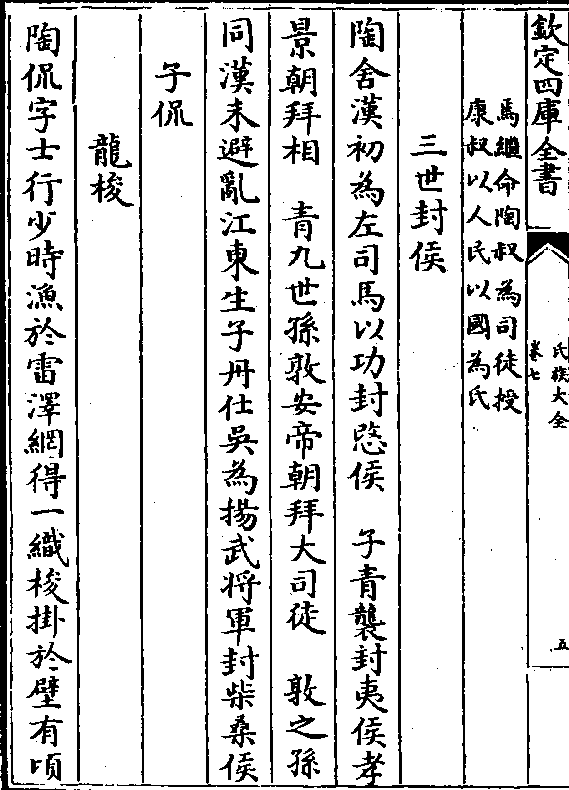 欽定四庫全書
氏族大全
卷七
五
馬繼命陶叔為司徒授
康叔以人民以國為氏
三世封侯
陶舍漢初為左司馬以功封愍侯　子青襲封夷侯孝
景朝拜相　青九世孫敦安帝朝拜大司徒　敦之孫
同漢末避亂江東生子丹仕吳為揚武將軍封柴桑侯
子侃
龍梭
陶侃字士行少時漁於雷澤網得一織梭掛於壁有頃